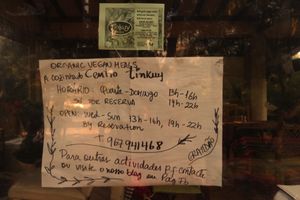 ORGANIC VEGAN MEALS
Centro Tinkuy
HORÁRIO: Quarta-Domingo 13h-16h
SÓ POR RESERVA 19h-22h
OPEN: Wed-Sun 13h-16h, 19h-22h
By Reservation
967941468
Para outras actividades p.f. contacte
ou visite o nosso blog ou Pág Fb
GRATIDÃO